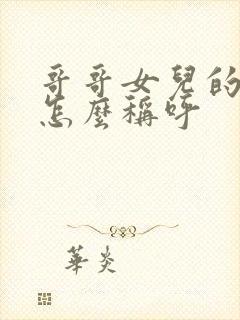 哥哥女兒的
怎麼稱呼
華炎